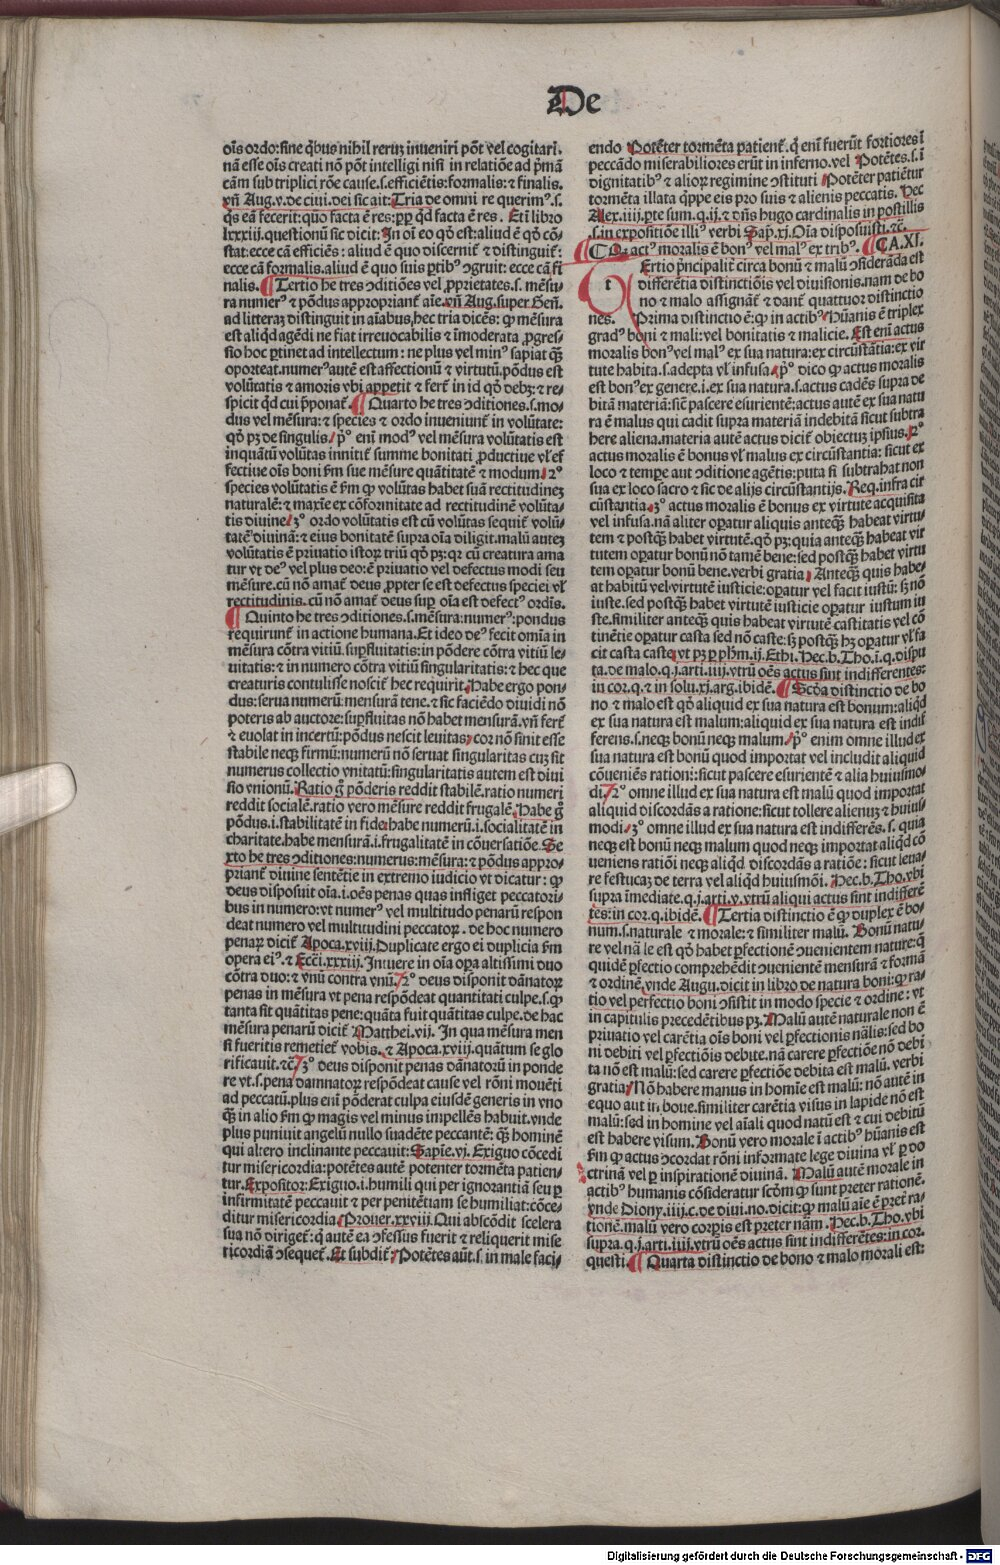 De
oīs ordo: sine q̄bus nihil rerum inveniri pōt vel cogitari.
nā esse oīs creati nō pōt intelligi nisi in relatiōe ad p̄mā
cām sub triplici rōe cause.s.efficiētis: formalis: ⁊ finalis.
vn̄ Aug.v.de ciui.dei sic ait: Tria de omni re querimꝰ.s.
q̄s eā fecerit: quo facta ē res: ꝓp̄ qd̄ facta ē res. Et ī libro
lxxxiij.questionū sic dicit: In oī eo qd̄ est: aliud ē qd̄ cō-
stat: ecce cā efficiēs: aliud ē quo discernit̄ ⁊ distinguit̄:
ecce cā formalis. aliud ē quo suis ꝑtibꝰ ꝯgruit: ecce cā fi
nalis. ¶ Tertio he tres ꝯditiōes vel ꝓprietates.s.mēsu/
ra numerꝰ ⁊ pōdus appropriant̄ aīe. vn̄ Aug.super Gen̄.
ad litteraꝫ distinguit in aīabus, hec tria dicēs: ꝙ mēsura
est aliqd̄ agēdi ne fiat irreuocabilis ⁊ īmoderata ꝓgres-
sio hoc ꝑtinet ad intellectum: ne plus vel minꝰ sapiat q̄ꝫ
oporteat. numerꝰ autē est affectionū ⁊ virtutū. pōdus est
volūtatis ⁊ amoris vbi appetit ⁊ fert̄ in id qd̄ debꝫ: ⁊ re-
spicit qd̄ cui p̄ponat̄. ¶ Quarto he tres ꝯditiones.s.mo/
dus vel mēsura: ⁊ species ⁊ ordo inveniunt̄ in volūtate:
qd̄ pꝫ de singulis. pº enī modꝰ vel mēsura volūtatis est
inquātū volūtas innitit̄ summe bonitati ꝓductiue vl̄ ef
fectiue oīs boni ẜm sue mēsure quātitatē ⁊ modum. 2º
species volūtatis ē ẜm ꝙ volūtas habet suā rectitudineꝫ
naturalē: ⁊ maxīe ex cōformitate ad rectitudinē volūta-
tis diuine. 3º ordo volūtatis est cū volūtas sequit̄ volū-
tatē diuinā: ⁊ eius bonitatē supra oīa diligit. malū auteꝫ
volūtatis ē priuatio istoꝝ triū qd̄ pꝫ: qꝛ cū creatura ama
tur vt deꝰ vel plus deo: ē priuatio vel defectus modi seu
mēsure. cū nō amat̄ deus ꝓpter se est defectus speciei vl̄
rectitudinis. cū nō amat̄ deus suꝑ oīa est defectꝰ ordīs.
¶ Quinto he tres ꝯditiones.s.mēsura: numerꝰ: pondus
requirunt̄ in actione humana. Et ideo deꝰ fecit omīa in
mēsura cōtra vitiū suꝑfluitatis: in pōdere cōtra vitiū le-
uitatis: ⁊ in numero cōtra vitiū singularitatis: ⁊ hec que
creaturis contulisse noscit̄ hec requirit. Habe ergo pon-
dus: serua numerū: mensurā tene. ⁊ sic faciēdo diuidi nō
poteris ab auctore: suꝑfluitas nō habet mensurā. vn̄ fert̄
⁊ euolat in incertū: pōdus nescit leuitas: cor nō sinit esse
stabile neqꝫ firmū: numerū nō seruat singularitas cuꝫ sit
numerus collectio vnitatū: singularitatis autem est diui
sio vnionū. Ratio g̊ pōderis reddit stabilē. ratio numeri
reddit socialē. ratio vero mēsure reddit frugalē. Habe g̊
pōdus.i.stabilitatē in fide: habe numerū.i.socialitatē in
charitate. habe mensurā.i.frugalitatē in cōuersatiōe. Se
xto he tres ꝯditiones: numerus: mēsura: ⁊ pōdus appro-
priant̄ diuine sentētie in extremo iudicio vt dicatur: ꝙ
deus disposuit oīa.i.oēs penas quas infliget peccatori-
bus in numero: vt numerꝰ vel multitudo penarū respon
deat numero vel multitudini peccatoꝝ. de hoc numero
penaꝝ dicit̄ Apoca.xviij. Duplicate ergo ei duplicia ẜm
opera eiꝰ. ⁊ Ecci̅.xxxiij. Intuere in oīa oꝑa altissimi duo
cōtra duo: ⁊ vnū contra vnū. 2º deus disponit dānatoꝝ
penas in mēsura vt pena respōdeat quantitati culpe.s.ꝙ
tanta sit quātitas pene: quāta fuit quātitas culpe. de hac
mēsura penarū dicit̄ Matthei.vij. In qua mēsura men
si fueritis remetiet̄ vobis. ⁊ Apoca.xviij. quātum se glo
rificauit.⁊c̄. 3º deus disponit penas dānatorū in ponde
re vt.s.pena damnatoꝝ respōdeat cause vel rōni mouēti
ad peccatū. plus enī pōderat culpa eiusdē generis in vno
q̄ꝫ in alio ẜm ꝙ magis vel minus impellēs habuit. vnde
plus puniuit angelū nullo suadēte peccantē: q̄ꝫ hominē
qui altero inclinante peccauit: Sapie.vj. Exiguo cōcedi
tur misericordia: potētes autē potenter tormēta patien-
tur. Expositor: Exiguo.i.humili qui per ignorantiā seu ꝑ
infirmitatē peccauit ⁊ per penitētiam se humiliat: cōce-
ditur misericordia. Prouer.xxviij. Qui abscōdit scelera
sua nō diriget̄: q̄ autē ea ꝯfessus fuerit ⁊ reliquerit mise
ricordiā ꝯsequet̄. Et subdit̄: Potētes aūt.s.in male faci/
endo Potēter tormēta patient̄. q̄ enī fuerūt fortiores ī
peccādo miserabiliores erūt in inferno. vel Potētes.s.ī
dignitatibꝰ ⁊ alioꝝ regimine ꝯstituti Potēter patiētur
tormēta illata q̄ppe eis pro suis ⁊ alienis peccatis. Hec
Alex.iiij.ꝑte sum.q.ij.⁊ dn̄s hugo cardinalis in postillis
.s.in expositiōe illiꝰ verbi Sap̄.xj. Oīa disposuisti.⁊c̄.
¶ Qꝫ actꝰ moralis ē bonꝰ vel malꝰ ex tribꝰ. ¶ CA.XI.
t Ertio p̄ncipalit̄ circa bonū ⁊ malū ꝯsiderāda est
differētia distinctiōis vel diuisionis. nam de bo
no ⁊ malo assignāt̄ ⁊ dant̄ quattuor distinctio
nes. Prima distinctio ē: ꝙ in actibꝰ hūanis ē triplex
gradꝰ boni ⁊ mali: vel bonitatis ⁊ malicie. Est enī actus
moralis bonꝰ vel malꝰ ex sua natura: ex circūstātia: ex vir
tute habita.s.adepta vl̄ infusa. pº dico ꝙ actus moralis
est bonꝰ ex genere.i.ex sua natura.s.actus cadēs supra de
bitā materiā: sic̄ pascere esurientē: actus autē ex sua natu
ra ē malus qui cadit supra materiā indebitā sicut subtra
here aliena. materia autē actus dicit̄ obiectuꝫ ipsius. 2º
actus moralis ē bonus vl̄ malus ex circūstantia: sicut ex
loco ⁊ tempe aut ꝯditione agētis: puta si subtrahat non
sua ex loco sacro ⁊ sic de alijs circūstantijs. Req.infra cir
cūstantia. 3º actus moralis ē bonus ex virtute acquisita
vel infusa. nā aliter oꝑatur aliquis anteq̄ꝫ habeat virtu-
tem ⁊ postq̄ꝫ habet virtutē. qd̄ pꝫ: quia anteq̄ꝫ habeat vir
tutem oꝑatur bonū nō tamē bene: sed postq̄ꝫ habet virtu
tem oꝑatur bonū bene. verbi gratia. Anteq̄ꝫ quis habe-
at habitū vel virtutē iusticie: oꝑatur vel facit iustū: sꝫ nō
iuste. sed postq̄ꝫ habet virtutē iusticie oꝑatur iustum iu
ste. similiter anteq̄ꝫ quis habeat virtutē castitatis vel cō
tinētie oꝑatur casta sed nō caste: sꝫ postq̄ꝫ hꝫ oꝑatur vl̄ fa
cit casta caste. vt pꝫ ꝑ ph̄m.ij.Ethi. Hec.b.Tho.ī.q.dispu
ta.de malo.q.j.arti.iiij.vtrū oēs actus sint indifferentes:
in cor.q.⁊ in solu.xj.arg.ibidē. ¶ Scd̄a distinctio de bo
no ⁊ malo est qd̄ aliquid ex sua natura est bonum: aliqd̄
ex sua natura est malum: aliquid ex sua natura est indif
ferens.s.neqꝫ bonū neqꝫ malum. pº enim omne illud ex
sua natura est bonū quod importat vel includit aliquid
cōueniēs rationi: sicut pascere esurientē ⁊ alia huiusmo/
di. 2º omne illud ex sua natura est malū quod importat
aliquid discordās a ratione: sicut tollere alienuꝫ ⁊ huius
modi. 3º omne illud ex sua natura est indifferēs.s.quia
neqꝫ est bonū neqꝫ malum quod neqꝫ importat aliqd̄ cō
ueniens ratiōi neqꝫ aliqd̄ discordās a ratiōe: sicut leua-
re festucaꝫ de terra vel aliqd̄ huiusmōi. Hec.b.Tho.vbi
supra īmediate.q.j.arti.v.vtrū aliqui actus sint indifferē
tes: in cor.q.ibidē. ¶ Tertia distinctio ē ꝙ duplex ē bo-
num.s.naturale ⁊ morale: ⁊ similiter malū. Bonū natu-
re vel nāle est qd̄ habet ꝑfectionē ꝯuenientem nature: q̄
quidē ꝑfectio comprehēdit ꝯuenientē mensurā ⁊ formā
⁊ ordinē. vnde Augu.dicit in libro de natura boni: ꝙ ra-
tio vel perfectio boni ꝯsistit in modo specie ⁊ ordine: vt
in capitulis precedētibus pꝫ. Malū autē naturale non ē
priuatio vel carētia oīs boni vel ꝑfectionis nālis: sed bo
ni debiti vel ꝑfectiōis debite. nā carere ꝑfectiōe nō debi
ta nō est malū: sed carere ꝑfectiōe debita est malū. verbi
gratia: Nō habere manus in homīe est malū: nō autē in
equo aut in boue. similiter carētia visus in lapide nō est
malū: sed in homine vel aīali quod natū est ⁊ cui debitū
est habere visum. Bonū vero morale ī actibꝰ hūanis est
ẜm ꝙ actus ꝯcordat rōni informate lege diuina vl̄ ꝑ do
ctrinā vel ꝑ inspirationē diuinā. Malū autē morale in
actibꝰ humanis cōsideratur scd̄m ꝙ sunt preter rationē.
vnde Diony.iiij.c.de diui.no.dicit: ꝙ malū aīe ē preť ra-
tionē. malū vero corpis est preter nām. Hec.b.Tho.vbi
supra.q.j.arti.iiij.vtrū oēs actus sint indifferētes: in cor.
questi. ¶ Quarta distinctio de bono ⁊ malo morali est:
Digitalisierung gefördert durch die Deutsche Forschungsgemeinschaft - DFG